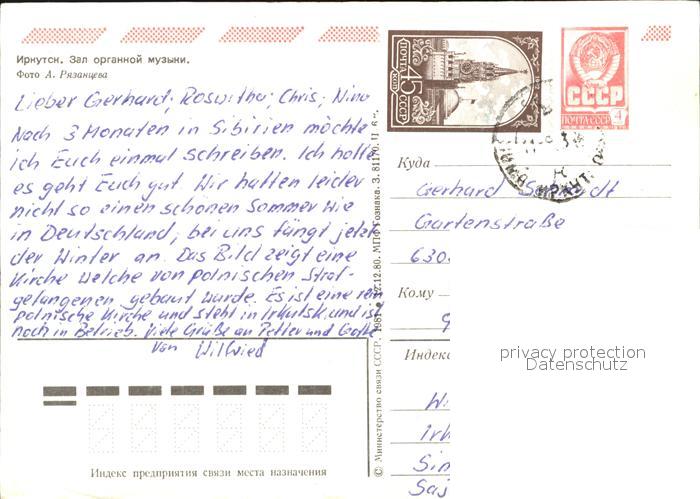 Иркутск. Зал органной музыки.
Фото А. Рязанцева
Lieber Gerhard, Roswitha, Chris, Nina
Nach 3 Monaten in Sibirien möchte
ich Euch einmal schreiben. Ich hoffe
es geht Euch gut. Wir hatten leider
nicht so einen schönen Sommer wie
in Deutschland, bei uns fängt jetzt
der Winter an. Das Bild zeigt eine
Kirche welche von polnischen Straf-
gefangenen gebaut wurde. Es ist eine rein
polnische Kirche und steht in Irkutsk und ist
noch in Betrieb. Viele Grüße an Petter und
von Wilfried
Индекс предприятия связи места назначения
© Министерство связи СССР. 1981 г. 17.12.80. МПФ Гознака. З. 81170. Ц. 8 к.
ПОЧТА СССР 45 КОП
СССР
ПОЧТА СССР 4
Куда
Gerhard
Gartenstraße
630
Кому
Индекс
Wi
Irk
Sin
Saj
privacy protection
Datenschutz